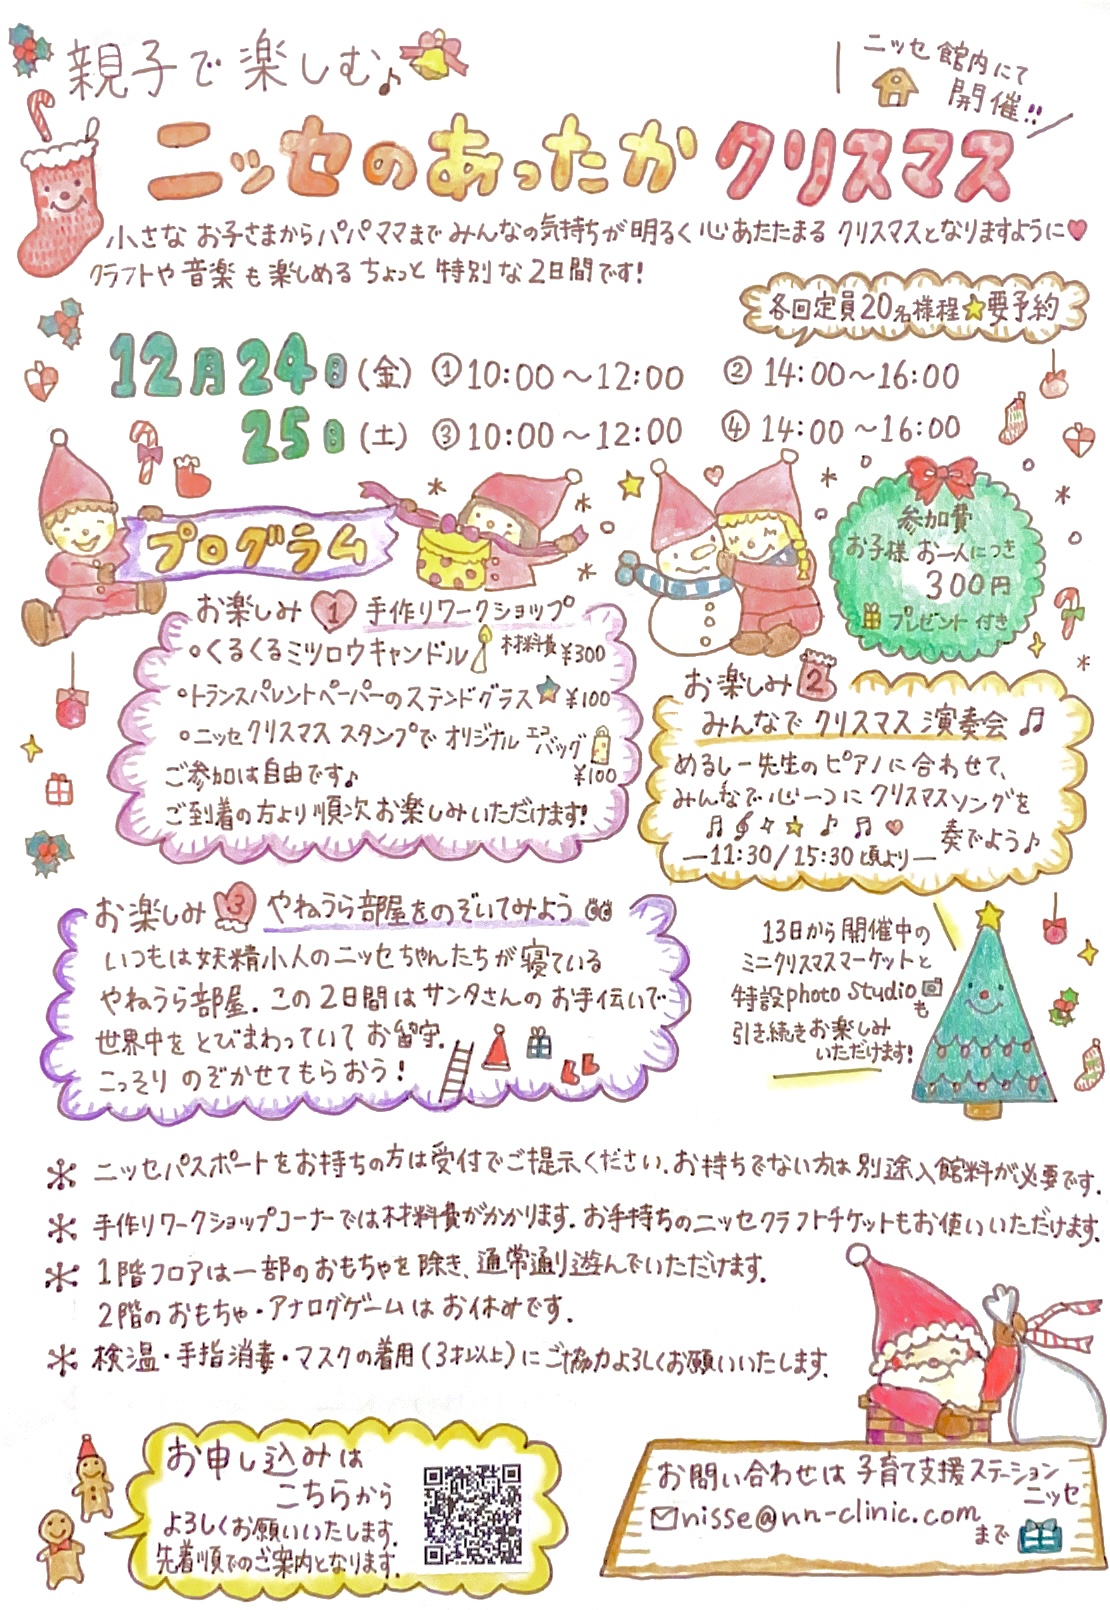 親子で楽しむ♪
ニッセ館内にて
開催!!
ニッセのあったかクリスマス
小さな お子さまからパパママまで みんなの気持ちが明るく心あたたまる クリスマスとなりますように♥
クラフトや音楽も楽しめるちょっと特別な2日間です!
各回定員20名様程★要予約
12月24日(金) ①10:00～12:00 ②14:00～16:00
25日(土) ③10:00～12:00 ④14:00～16:00
プログラム
参加費
お子様 お一人につき
300円
プレゼント付き
お楽しみ 1 手作りワークショップ
・くるくるミツロウキャンドル 材料費¥300
・トランスパレントペーパーのステンドグラス★¥100
・ニッセクリスマス スタンプで オリジナル エコバッグ
¥100
ご参加は自由です♪
ご到着の方より順次お楽しみいただけます!
お楽しみ 2
みんなで クリスマス演奏会♫
めるしー先生のピアノに合わせて、
みんなで心一つにクリスマスソングを
奏でよう♪
―11:30/15:30頃より―
お楽しみ 3 やねうら部屋をのぞいてみよう
いつもは妖精小人のニッセちゃんたちが寝ている
やねうら部屋.この2日間はサンタさんのお手伝いで
世界中を とびまわっていて お留守.
こっそり のぞかせてもらおう!
13日から開催中の
ミニクリスマスマーケットと
特設photo studioも
引き続きお楽しみ
いただけます!
＊ ニッセパスポートをお持ちの方は受付でご提示ください.お持ちでない方は別途入館料が必要です.
＊ 手作りワークショップコーナーでは材料費がかかります.お手持ちのニッセクラフトチケットもお使いいただけます.
＊ 1階フロアは一部のおもちゃを除き、通常通り遊んでいただけます.
2階のおもちゃ・アナログゲームはお休みです.
＊ 検温・手指消毒・マスクの着用(3才以上)にご協力よろしくお願いいたします.
お申し込みは
こちらから
よろしくお願いいたします.
先着順でのご案内となります.
お問い合わせは 子育て支援ステーション
ニッセ
nisse@nn-clinic.com
まで